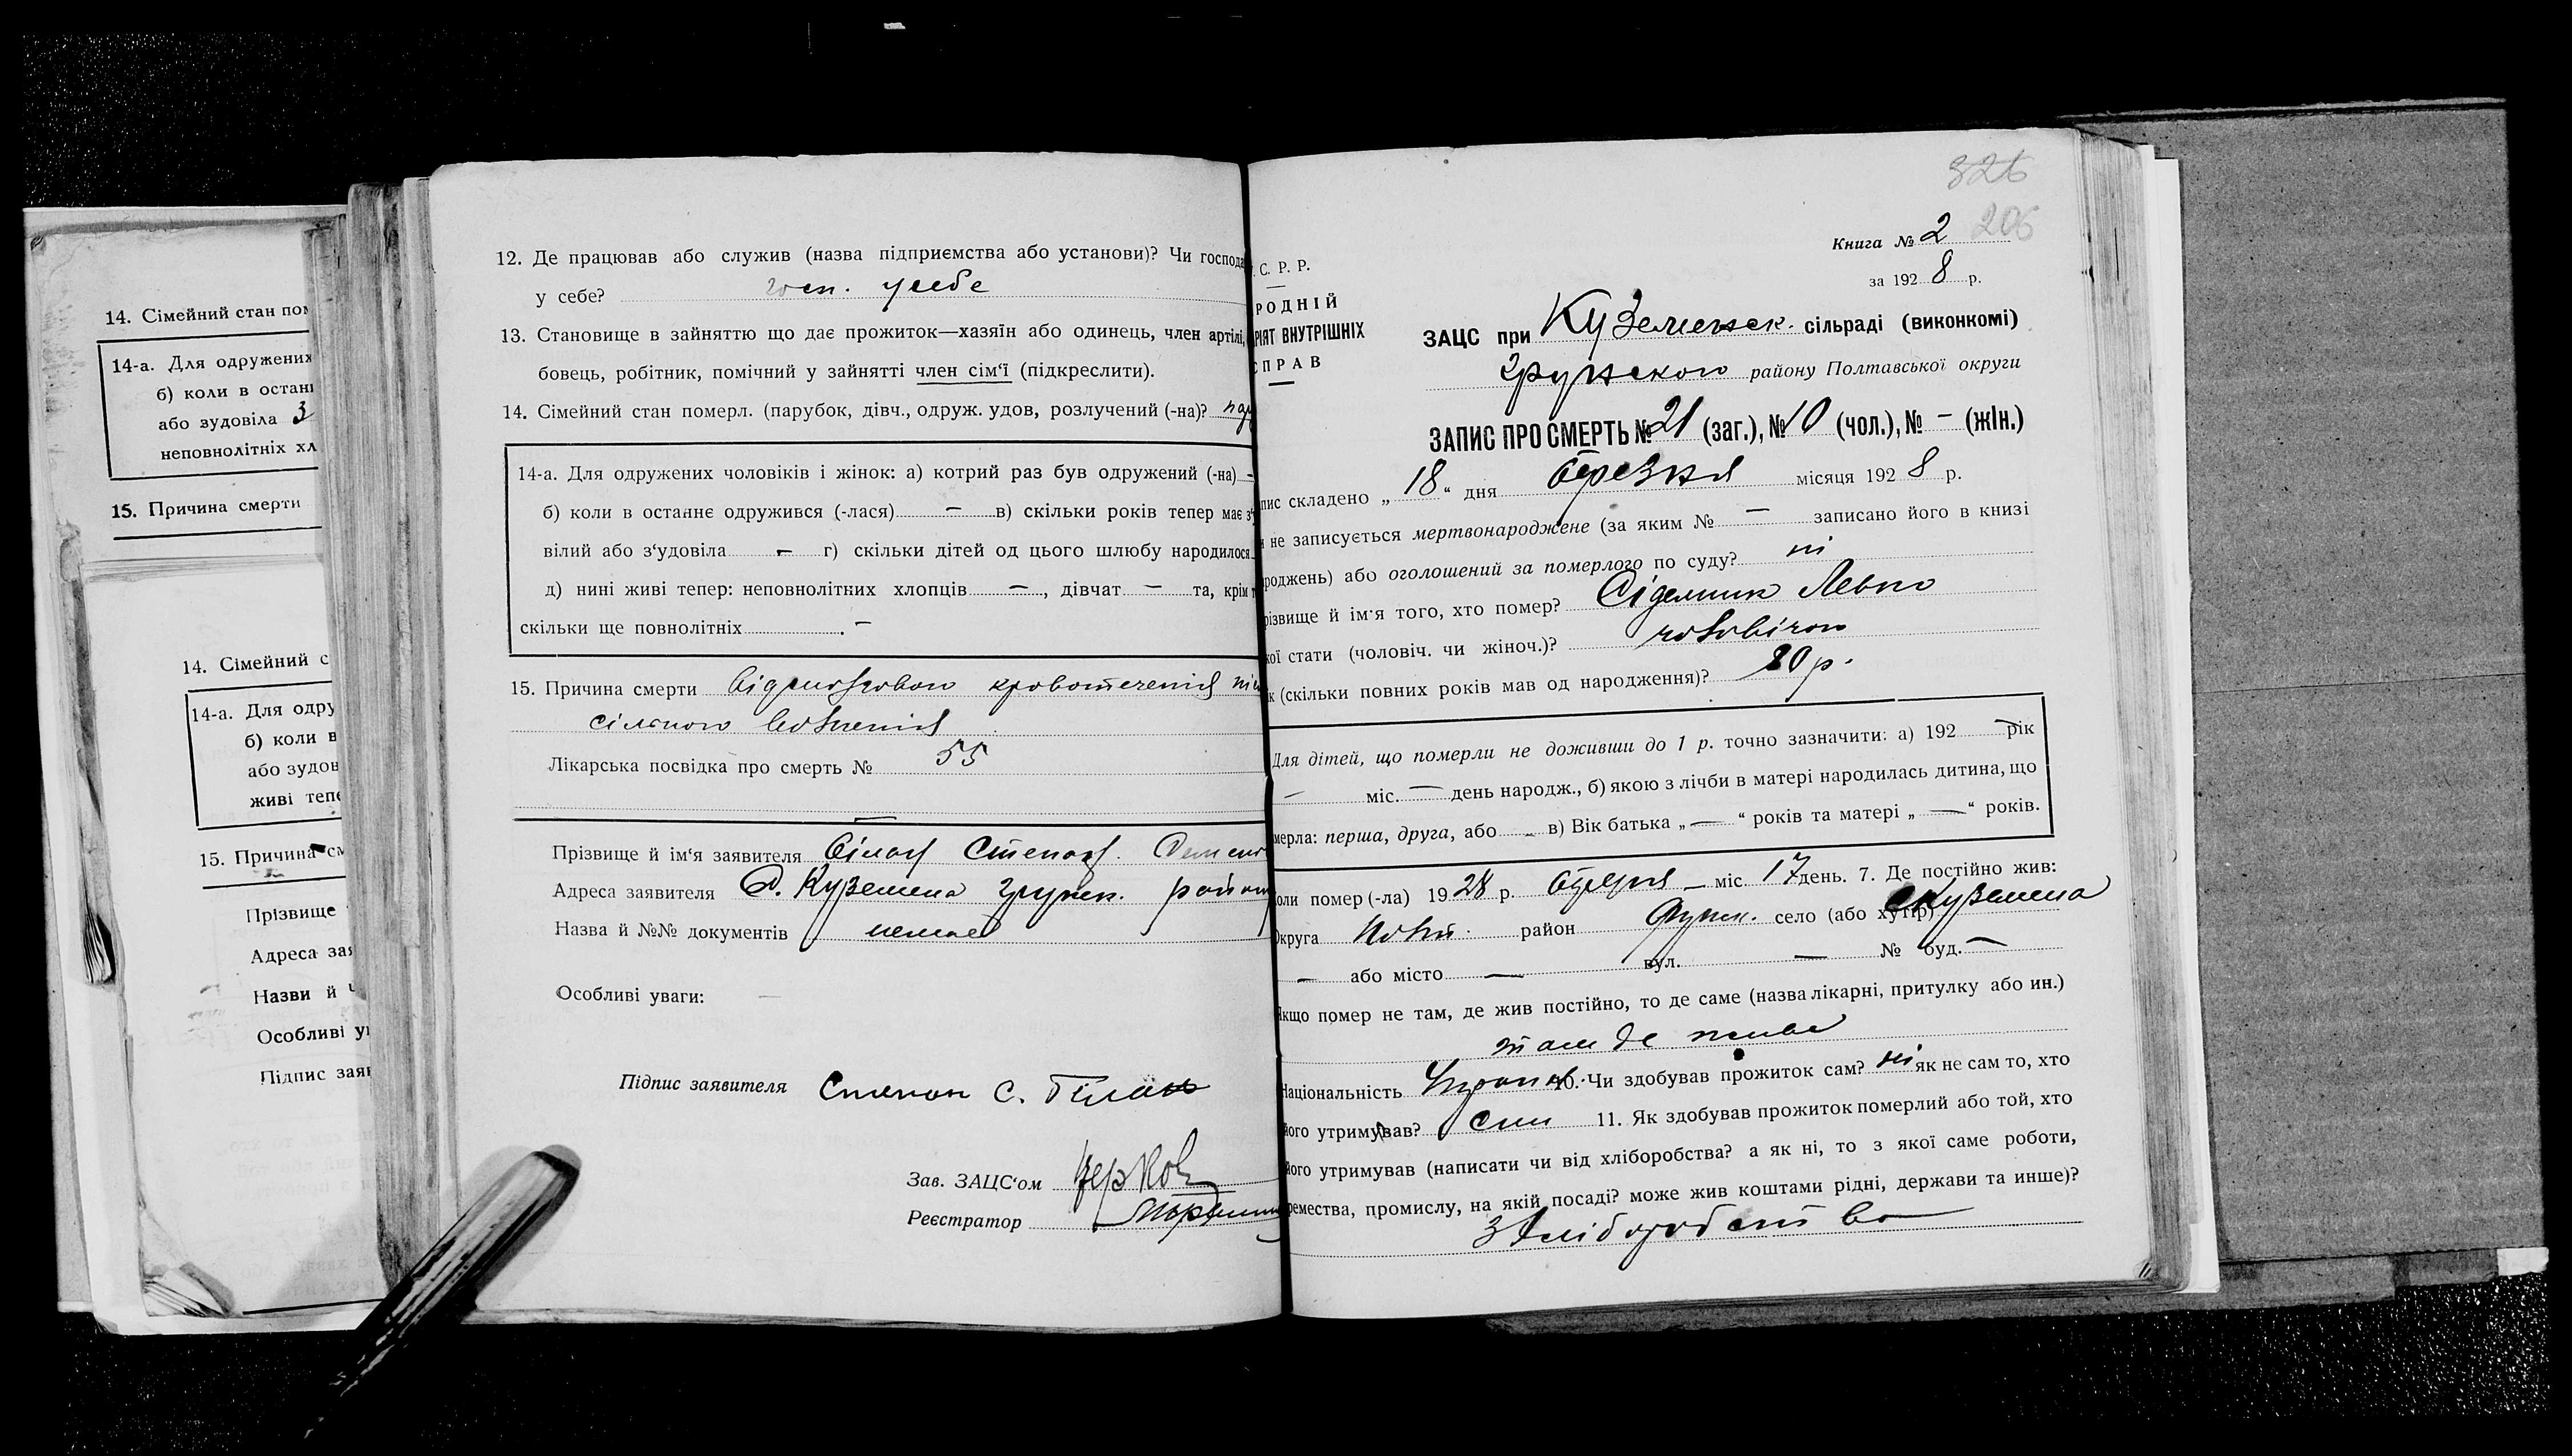 14. Сімейний стан пом
14-а. Для одружених
б) коли в останн
або зудовіла 3
неповнолітніх хл
15. Причина смерти
14. Сімейний с
14-а. Для одру
б) коли в
або зудов
живі тепе
15. Причина см
Прізвище
Адреса зая
Назви й
Особливі ув
Підпис заяв
12. Де працював або служив (назва підприємства або установи)? Чи господа
у себе? госп. у себе
13. Становище в зайняттю що дає прожиток—хазяїн або одинець, член артілі,
бовець, робітник, помічний у зайнятті член сім‘ї (підкреслити).
14. Сімейний стан померл. (парубок, дівч., одруж. удов, розлучений (-на)?
14-а. Для одружених чоловіків і жінок: а) котрий раз був одружений (-на) —
б) коли в останнє одружився (-лася) — в) скільки років тепер має з‘у
вілий або з‘удовіла — г) скільки дітей од цього шлюбу народилося
д) нині живі тепер: неповнолітних хлопців —, дівчат — та, крім т
скільки ще повнолітніх . —
15. Причина смерти кровотечения
сільного
Лікарська посвідка про смерть № 55
Прізвище й ім‘я заявителя Білан Степан
Адреса заявителя с. Куземена грунск. район
Назва й №№ документів немає
Особливі уваги: —
Підпис заявителя Степан С. Білан
Зав. ЗАЦС‘ом
Реєстратор
326
206
Книга № 2
за 1928 р.
. С. Р. Р.
РОДНІЙ
РІЯТ ВНУТРІШНІХ
СПРАВ
ЗАЦС при Куземенск. сільраді (виконкомі)
Грунского району Полтавської округи
ЗАПИС ПРО СМЕРТЬ № 21 (заг.), № 10 (чол.), № — (жін.)
пис складено „18“ дня березня місяця 1928 р.
и не записується мертвонароджене (за яким № — записано його в книзі
роджень) або оголошений за померлого по суду? ні
різвище й ім‘я того, хто помер? Сідельник Левко
кої стати (чоловіч. чи жіноч.)? чоловічої
ік (скільки повних років мав од народження)? 20 р.
Для дітей, що померли не доживши до 1 р. точно зазначити: а) 192 — рік
— міс. — день народж., б) якою з лічби в матері народилась дитина, що
мерла: перша, друга, або — в) Вік батька „—“ років та матері „—“ років.
Коли помер (-ла) 1928 р. — міс. 17 день. 7. Де постійно жив:
Округа Полт. район Грунск. село (або хутір) с Куземена
— або місто — вул. — № буд. —
Якщо помер не там, де жив постійно, то де саме (назва лікарні, притулку або ин.)
там де живе
Національність 10. Чи здобував прожиток сам? ні як не сам то, хто
його утримував? 11. Як здобував прожиток померлий або той, хто
його утримував (написати чи від хліборобства? а як ні, то з якої саме роботи,
ремества, промислу, на якій посаді? може жив коштами рідні, держави та инше)?
з хліборобства